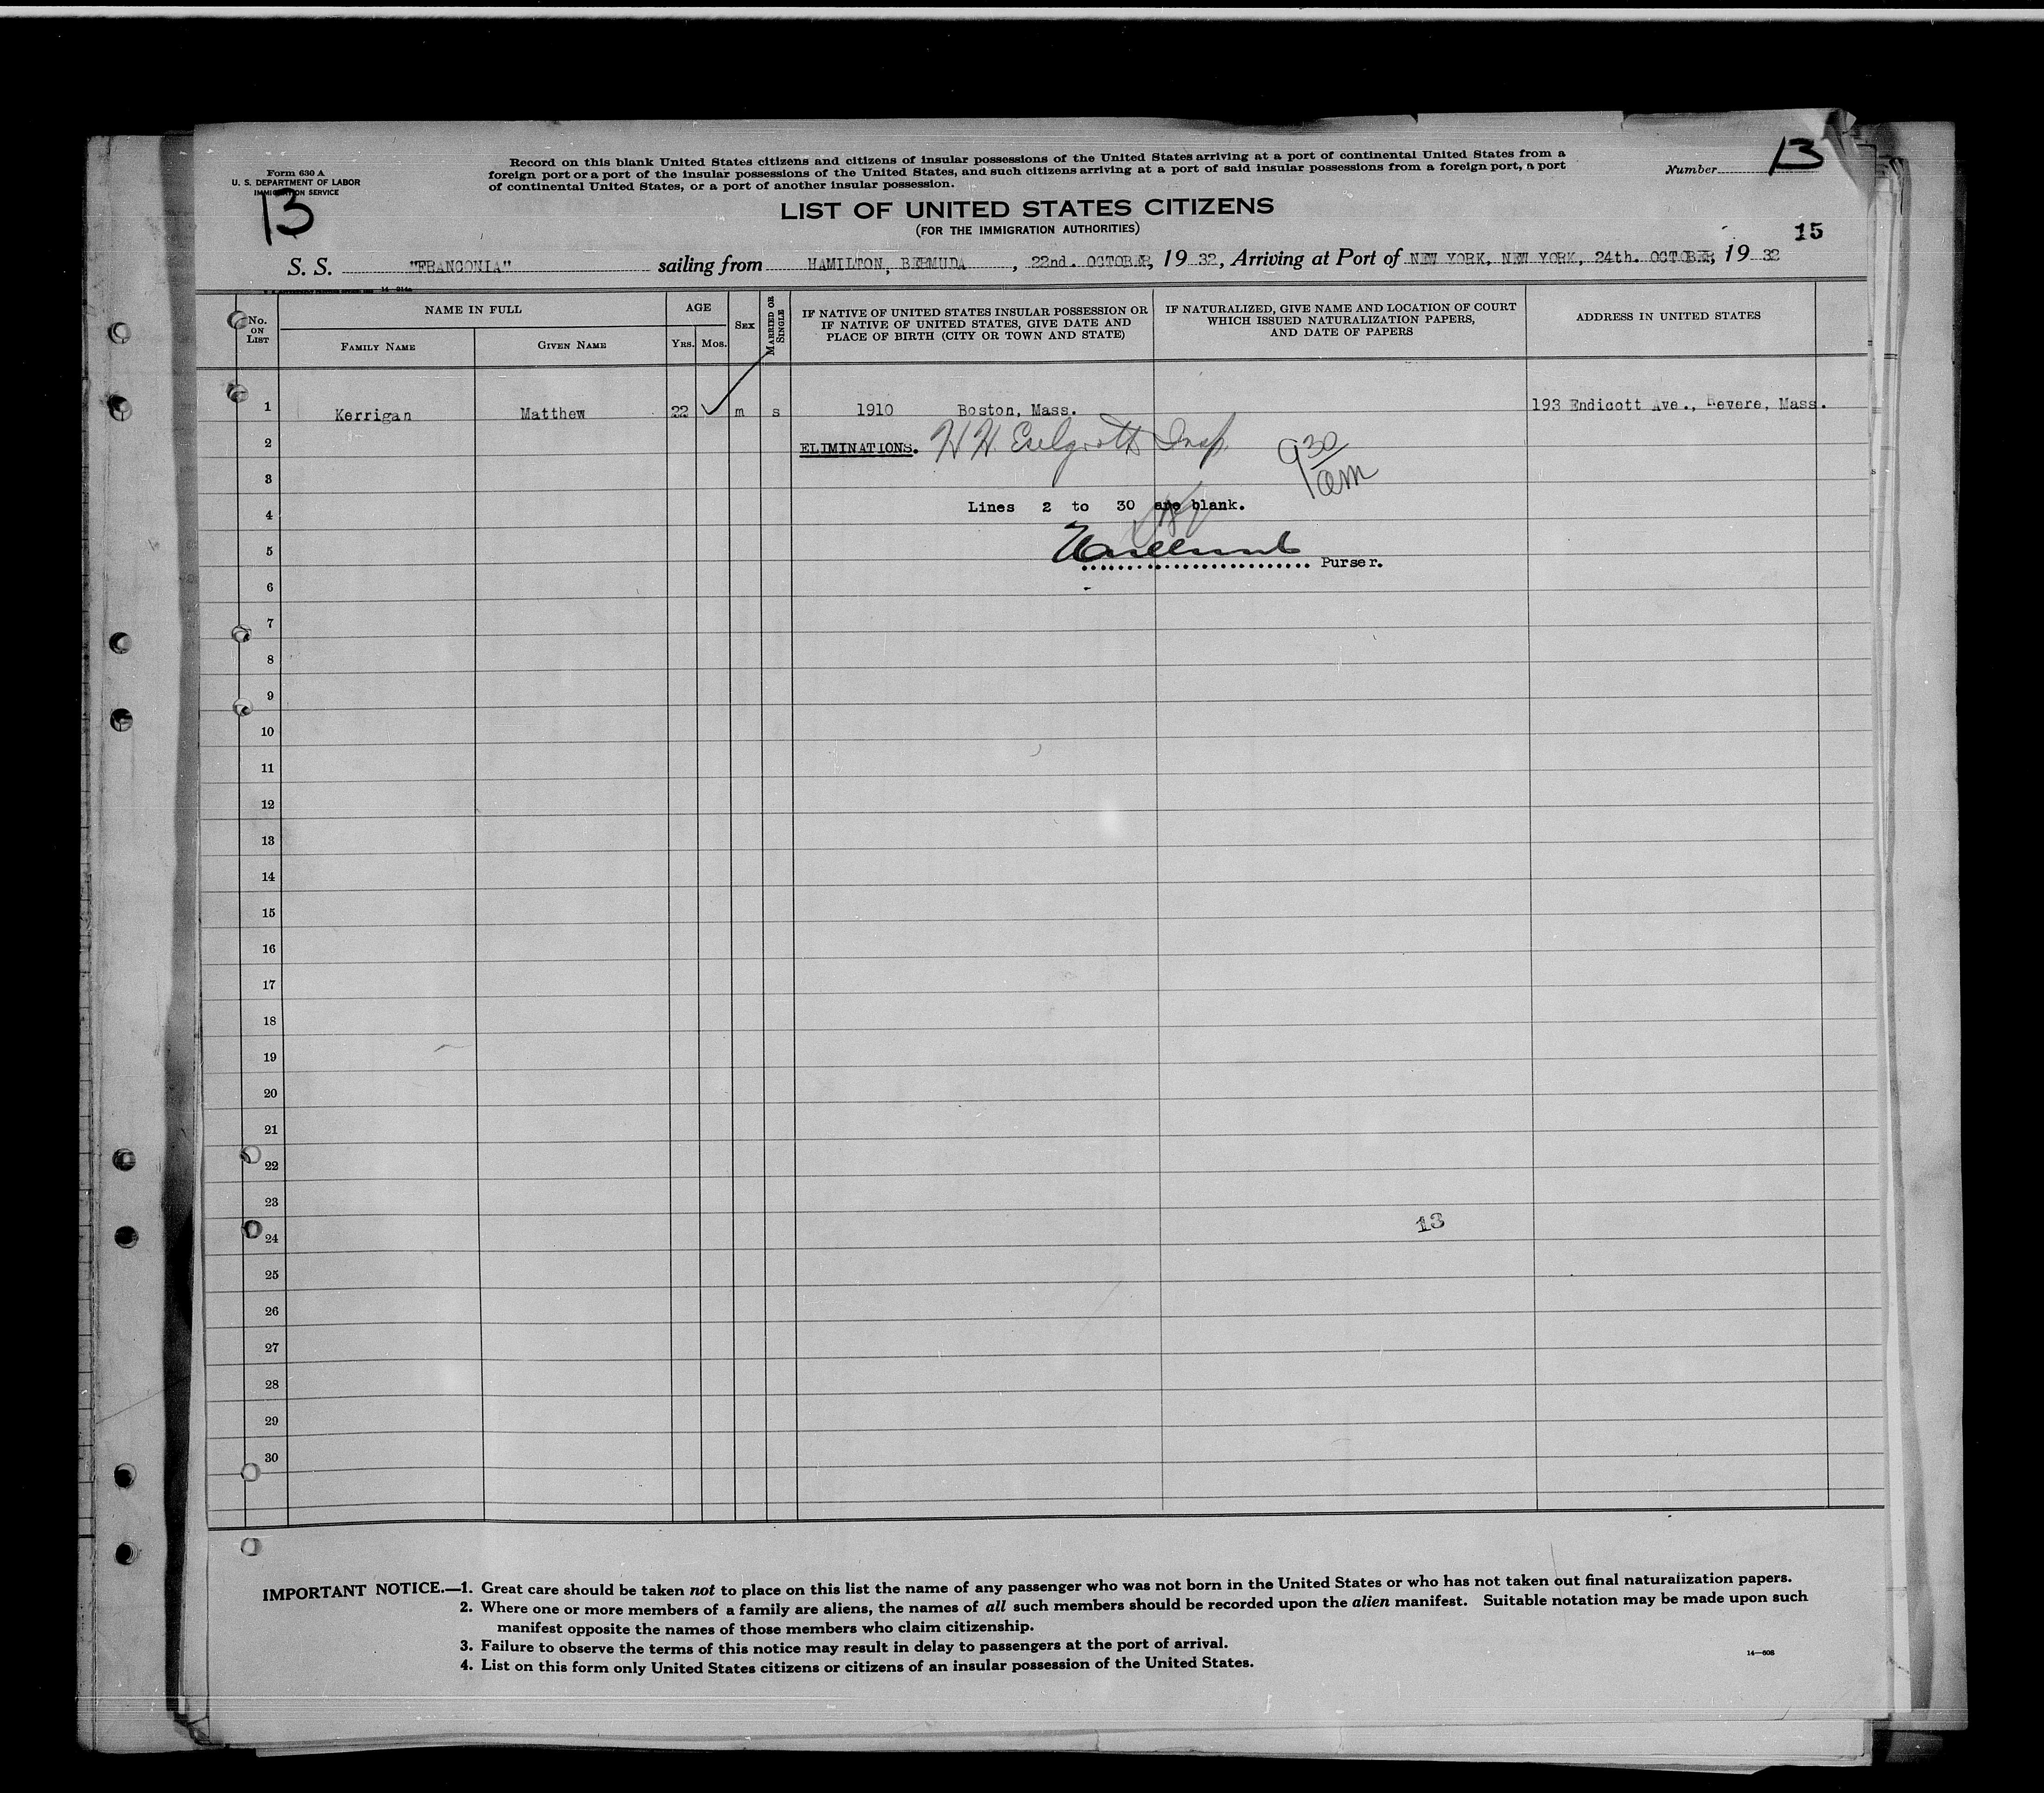 Form 630 A
U. S. DEPARTMENT OF LABOR
IMMIGRATION SERVICE
13
Record on this blank United States citizens and citizens of insular possessions of the United States arriving at a port of continental United States from a
foreign port or a port of the insular possessions of the United States, and such citizens arriving at a port of said insular possessions from a foreign port, a port
of continental United States, or a port of another insular possession.
Number 13
LIST OF UNITED STATES CITIZENS
(FOR THE IMMIGRATION AUTHORITIES)
15
S. S. "FRANCONIA" sailing from HAMILTON, BERMUDA, 22nd. OCTOBER, 19 32, Arriving at Port of NEW YORK, NEW YORK, 24th. OCTOBER, 19 32
No. ON LIST
NAME IN FULL
FAMILY NAME
GIVEN NAME
AGE
YRS. MOS.
SEX
MARRIED OR SINGLE
IF NATIVE OF UNITED STATES INSULAR POSSESSION OR
IF NATIVE OF UNITED STATES, GIVE DATE AND
PLACE OF BIRTH (CITY OR TOWN AND STATE)
IF NATURALIZED, GIVE NAME AND LOCATION OF COURT
WHICH ISSUED NATURALIZATION PAPERS,
AND DATE OF PAPERS
ADDRESS IN UNITED STATES
1 Kerrigan Matthew 22 m s 1910 Boston, Mass. 193 Endicott Ave., Revere, Mass.
2 ELIMINATIONS. H H Insp. 9 30
3 am
4 Lines 2 to 30 are blank.
5 Purser.
6
7
8
9
10
11
12
13
14
15
16
17
18
19
20
21
22
23
24 13
25
26
27
28
29
30
IMPORTANT NOTICE.—1. Great care should be taken not to place on this list the name of any passenger who was not born in the United States or who has not taken out final naturalization papers.
2. Where one or more members of a family are aliens, the names of all such members should be recorded upon the alien manifest. Suitable notation may be made upon such
manifest opposite the names of those members who claim citizenship.
3. Failure to observe the terms of this notice may result in delay to passengers at the port of arrival.
4. List on this form only United States citizens or citizens of an insular possession of the United States.
14—608